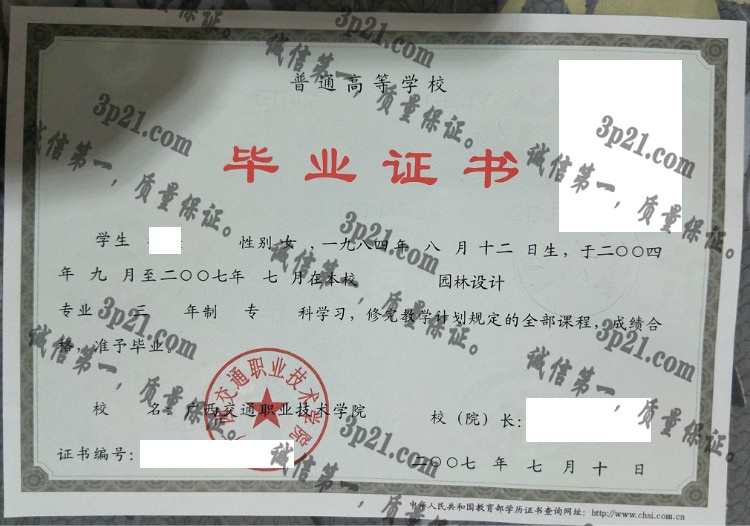 普通高等学校
毕业证书
学生 性别 女 ，一九八四年 八 月 十二 日生，于二〇〇四
年 九 月至二〇〇七年 七 月在本校 园林设计
专业 三 年制 专 科学习，修完教学计划规定的全部课程，成绩合
格，准予毕业。
广西交通职业技术学院
校 名：广西交通职业技术学院 校（院）长：
证书编号： 二〇〇七 年 七 月 十 日
中华人民共和国教育部学历证书查询网址：http://www.chsi.com.cn
3p21.com
诚信第一，质量保证。
3p21.com
诚信第一，质量保证。
3p21.com
诚信第一，质量保证。
3p21.com
诚信第一，质量保证。
3p21.com
诚信第一，质量保证。
3p21.com
诚信第一，质量保证。
3p21.com
诚信第一，质量保证。